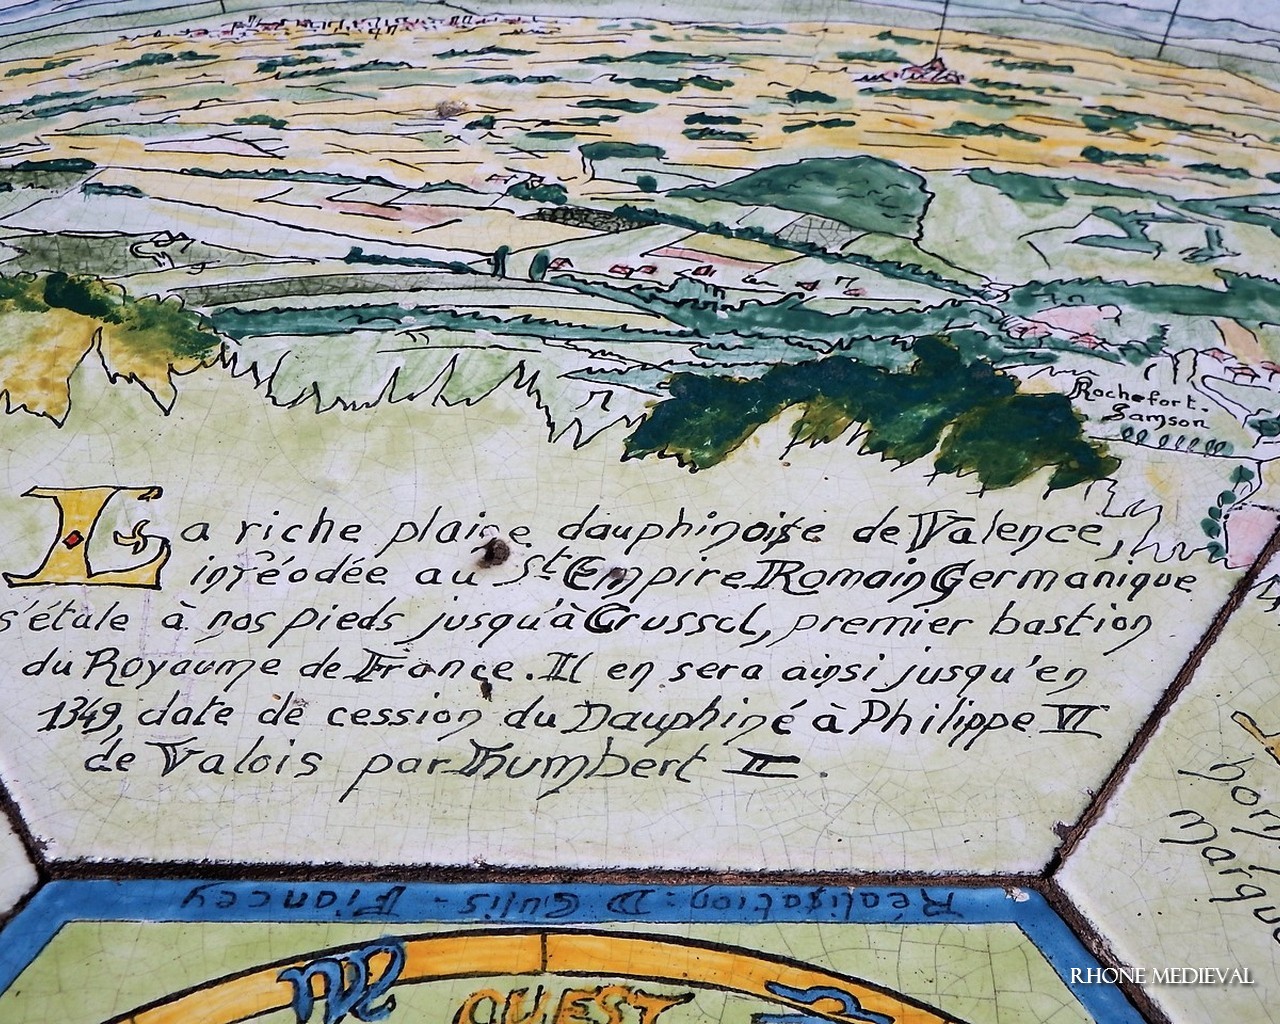 Rochefort-
Samson
La riche plaine dauphinoise de Valence,
inféodée au St Empire Romain Germanique
s'étale à nos pieds jusqu'à Crussol, premier bastion
du Royaume de France. Il en sera ainsi jusqu'en
1349, date de cession du Dauphiné à Philippe VI
de Valois par Humbert II.
Réalisation: D Gulis - Fiancey
OUEST
RHONE MEDIEVAL